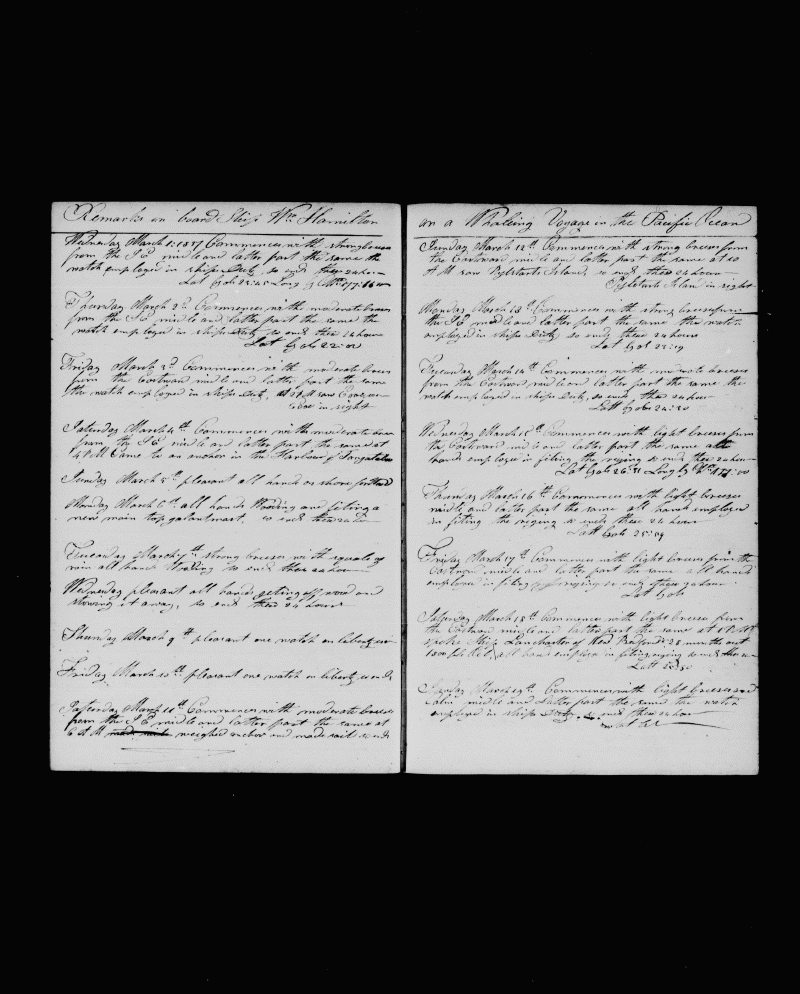 Remarks on board Ship Wm Hamilton
Wednesday March 1: 1837 Commences with strong breezes
from the SE midle and latter part the same the
watch employed in ships Duty so ends these 24 hours
Lat by ob 22:45 Long by
Thursday March 2d Commences with moderate breezes
from the SE midle and latter part the same the
watch employed in ships Duty so ends these 24 hours
Lat by ob 22:20
Friday March 3d Commences with moderate breezes
from the Eastward midle and latter part the same
the watch employed in ships Duty, at 2 P M saw
in sight
Saturday March 4th Commences with moderate
from the SE midle and latter part the same at
4 P M Came to an anchor in the Harbour of Tongataboo
Sunday March 5th pleasant all hands on shore
Monday March 6th all hands Wooding and fiting a
new main top galantmast, so ends these 24 ho
Tuesday March 7th strong breezes with squals of
rain all hands Wooding so ends these 24 hours
Wednesday pleasant all hands geting off wood and
stowing it away, so ends these 24 hours
Thursday March 9th pleasant one watch on liberty
Friday March 10th pleasant one watch on liberty so ends
Saturday March 11th Commences with moderate breezes
from the SE midle and latter part the same at
6 A M weighed anchor and made sail so ends
on a Whaleing Voyage in the Pacific Ocean
Sunday March 12th Commences with strong breezes from
the Eastward midle and latter part the same at 10
A M saw Pylstarts Island, so ends these 24 hours
Pylstarts Island in sight
Monday March 13th Commences with strong breezes from
the SE midle and latter part the same the watch
employed in ships Duty so ends these 24 hours
Lat by ob 23:19
Tuesday March 14th Commences with moderate breezes
from the Eastward midle and latter part the same the
watch employed in ships Duty, so ends these 24 hours
Latt by ob 24:30
Wednesday March 15th Commences with light breezes from
the Eastward midle and latter part the same all
hands employed in fiting the riging so ends these 24 hours
Lat by ob 26:31 Long by 177:00
Thursday March 16th Commences with light breezes
midle and latter part the same all hands employed
in fiting the riging so ends these 24 hours
Latt by ob 28:09
Friday March 17th Commences with light breezes from the
Eastward midle and latter part the same all hands
employed in fiting riging so ends these 24 hours
Lat by ob
Saturday March 18th Commences with light breezes from
the Eastward midle and latter part the same at 1 P M
spoke Ship Lanchaster of New Bedford 28 months out
1800 bbls all hands employed in fiting riging so ends these
Latt
Sunday March 19th Commences with light breezes and
calm midle and latter part the same the watch
employed in ships Duty, so ends these 24 hours
Lat